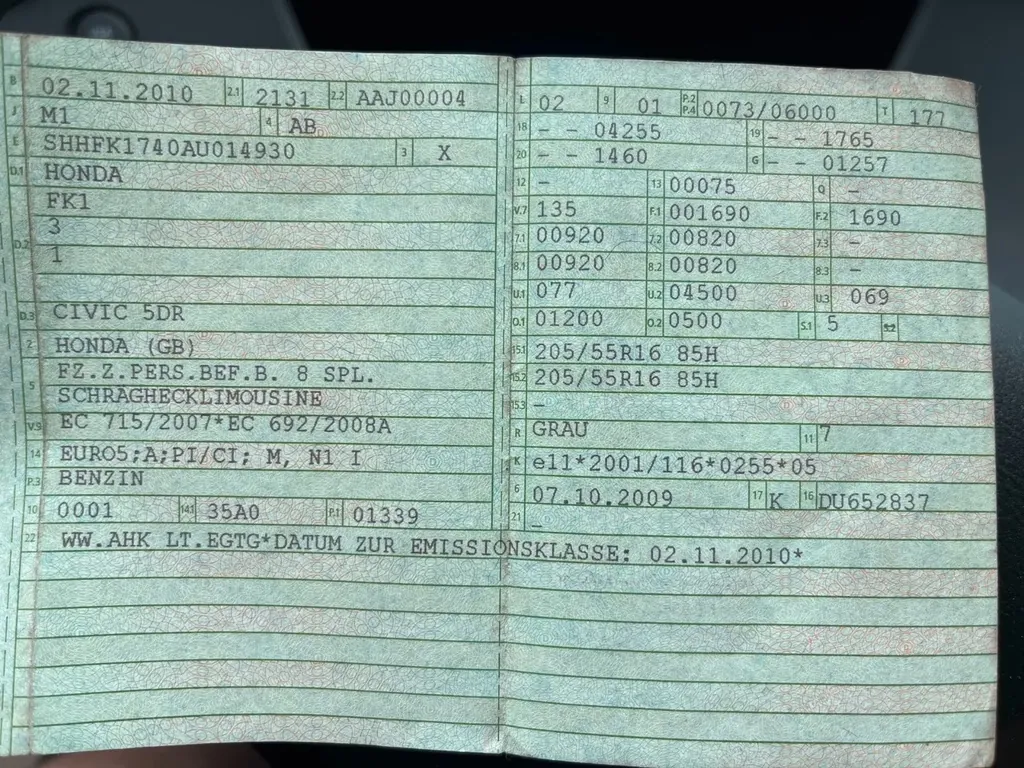 B 02.11.2010 2.1 2131 2.2 AAJ00004
J M1 4 AB
E SHHFK1740AU014930 3 X
D.1 HONDA
D.2 FK1
3
1
D.3 CIVIC 5DR
2 HONDA (GB)
5 FZ.Z.PERS.BEF.B. 8 SPL.
SCHRAGHECKLIMOUSINE
V.9 EC 715/2007*EC 692/2008A
14 EURO5;A;PI/CI; M, N1 I
P.3 BENZIN
10 0001 14.1 35A0 P.1 01339
L 02 9 01 P.2 P.4 0073/06000 T 177
18 - - 04255 19 - - 1765
20 - - 1460 G - - 01257
12 - 13 00075 Q -
V.7 135 F.1 001690 F.2 1690
7.1 00920 7.2 00820 7.3 -
8.1 00920 8.2 00820 8.3 -
U.1 077 U.2 04500 U.3 069
O.1 01200 O.2 0500 S.1 5 S.2
15.1 205/55R16 85H
15.2 205/55R16 85H
15.3 -
R GRAU 11 7
K e11*2001/116*0255*05
6 07.10.2009 17 K 16 DU652837
21 -
22 WW.AHK LT.EGTG*DATUM ZUR EMISSIONSKLASSE: 02.11.2010*